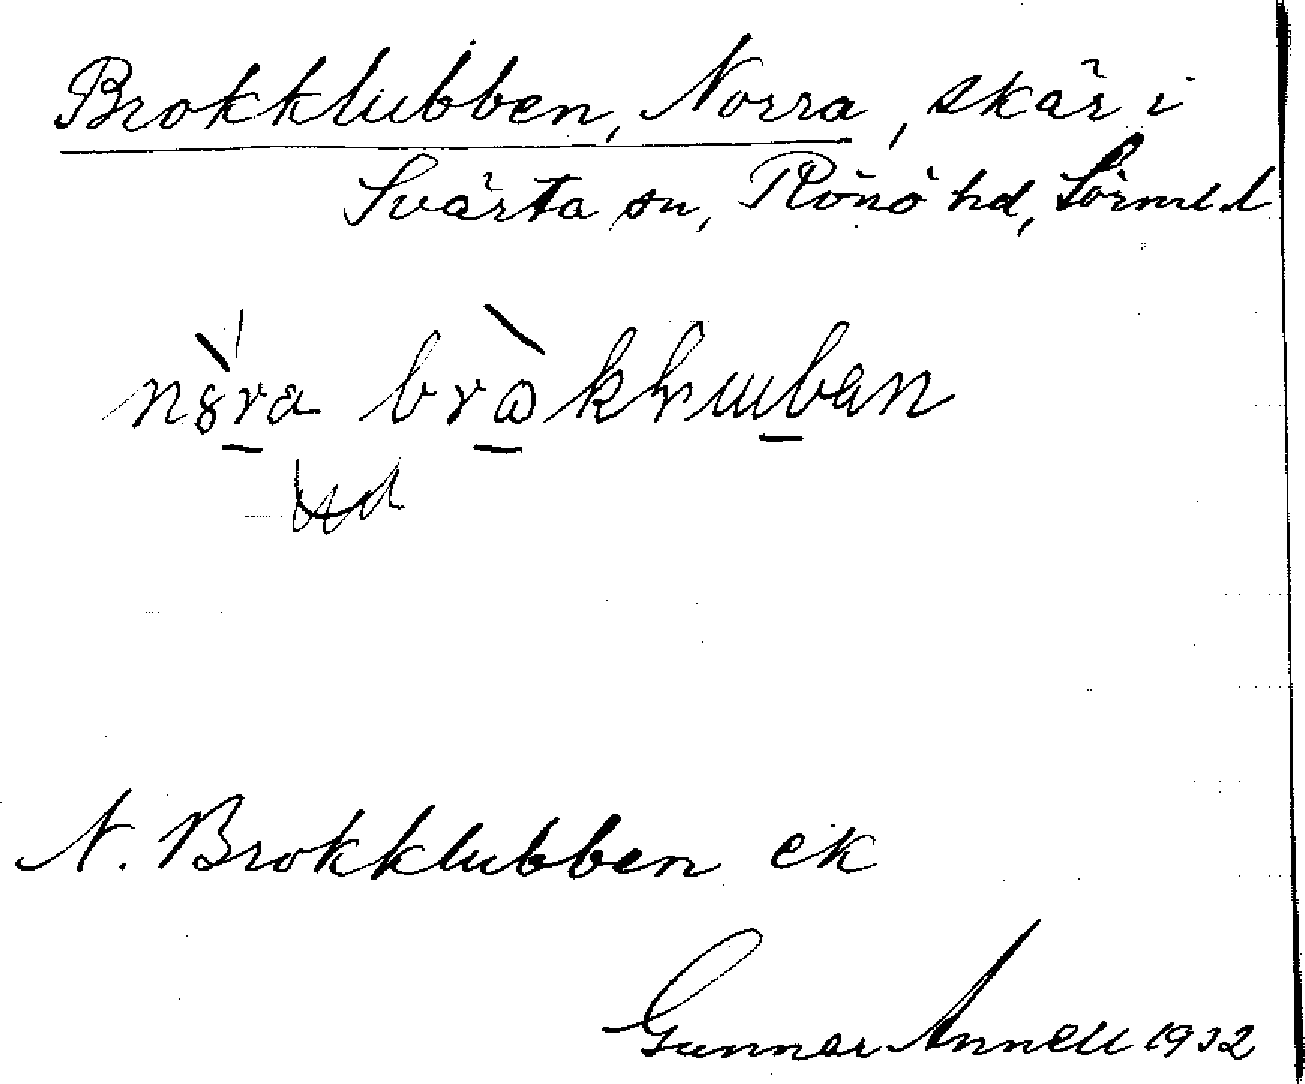 Brokklubben, Norra, skär i
Svärta sn, Rönö hd, Sörml.
N. Brokklubben ek
Gunnar Annell 1932